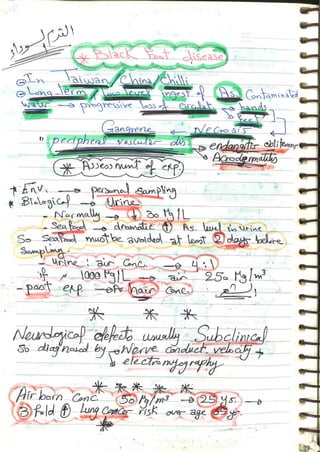 القدم السوداء
* Black Foot disease
In Taiwan / China / Chilli
Long-Term / low level ingest of As Contaminated
water → progressive loss of circulat → hands
feet
Gangrene ← Necrosis ←
"peripheral vascular dis" → endangitis obliterans
→ Acrodermatitis
* Assessment of exp.
* Env. → personal sampling
* Biological → Urine
- Normally → ↓ 30 Mg/L
- Seafood → dramatic ↑ As. level in urine
So Seafood must be avoided at least 2 days before
Sampling.
- urine : air Conc. → 4:1
if 1000 Mg/L → air 250 Mg/m³
- past exp. → As hair Conc.
* * *
Neurological defects usually Subclinical
so diagnosed by → Nerve conduct. velocity +
→ electromyography
* * * * *
Air born Conc. 50 Mg/m³ → 25 yrs. →
3 Fold ↑ Lung Cancer risk over age
*